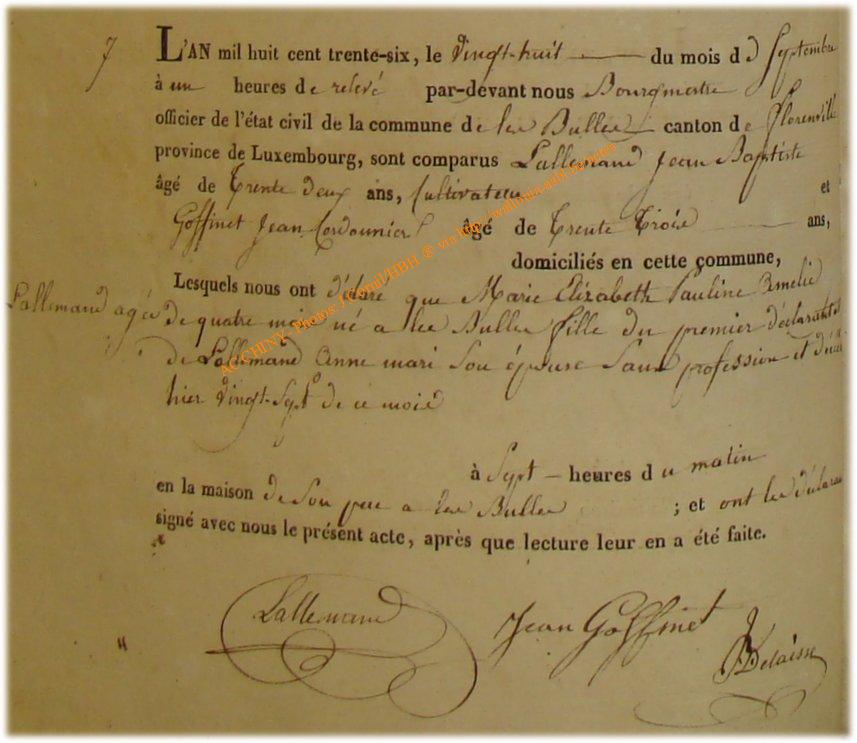 7
L'AN mil huit cent trente-six, le Vingt-huit du mois d e Septembre
à un heures de relevé par-devant nous Bourgmestre
officier de l'état civil de la commune de les Bulles canton de Florenville
province de Luxembourg, sont comparus Lallemand Jean Baptiste
âgé de trente deux ans, Cultivateur et
Goffinet Jean Cordounier âgé de trente trois ans,
domiciliés en cette commune,
Lesquels nous ont déclaré que Marie Elizabeth Pauline Amelie
Lallemand agée de quatre mois né a les Bulles fille du premier déclarant et
de Lallemand Anne mari Son épouse Sans profession et
hier Vingt-Sept de ce mois
à Sept heures du matin
en la maison de Son pere a les Bulles ; et ont les
signé avec nous le présent acte, après que lecture leur en a été faite.
Lallemand
Jean Goffinet
Delaisse
"
AGCHINY- Photos J Cornil/HBH ® via http://wallonia-asbl.